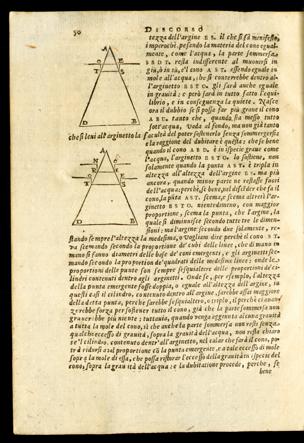 50 DISCORSO
A
E O
T S
D B
che si levi all'arginetto la
A
E O
T S
D B
tezza dell'argine ES. il che si fa manifesto,
imperochè. pesando la materia del cono egual-
mente, come l'acqua, la parte sommersa
SBDT. resta indifferente al muoversi in
giù, ò in sù, e'l cono AST. essendo eguale in
mole all'acqua, che si conterrebbe dentro al-
l'arginetto ESTO. gli sarà anche eguale
in gravità: e però sarà in tutto fatto l'equi-
librio, e in conseguenza la quiete. Nasce
ora il dubbio se si possa far più grave il cono
ABD. tanto che, quando sia messo tutto
sott'acqua, vada al fondo, ma non già tanto
facultà del poter sostenerlo senza sommergersi:
e la ragione del dubitare è questa: che se bene
quando il cono ABD. è in specie grave come
l'acqua, l'arginetto ESTO. lo sostiene, non
solamente quando la punta AST. è tripla in
altezza all'altezza dell'argine ES. ma più
ancora, quando minor parte ne restasse fuori
dell'acqua: perchè, se bene, nel discender che fa il
cono, la punta AST. scema, e scema altresì l'ar-
ginetto ESTO. nientedimeno, con maggior
proportione, scema la punta, che l'argine, la
quale si diminuisce secondo tutte tre le dimen-
sioni: ma l'argine secondo due solamente, re-
stando sempre l'altezza la medesima, Vogliam dire perchè il cono ST.
va scemando secondo la proportione de' cubi delle linee, che di mano in
mano si fanno diametri delle base de' coni emergenti, e gli arginetti sce-
mando secondo la proportion de' quadrati delle medesime linee: onde le
proportioni delle punte son sempre sesquialtere delle proportioni de' ci-
lindri contenuti dentro agli arginetti. Onde se, per esempio, l'altezza
della punta emergente fosse doppia, o eguale all'altezza dell'argine, in
questi casi il cilindro, contenuto dentro all'argine, sarebbe assai maggiore
della detta punta, perchè sarebbe sesquialtero, o triplo, il perchè ci avan-
zerebbe forza per sostener tutto il cono, già che la parte sommersa non
graverebbe più niente; tuttavia, quando venga aggiunta alcuna gravità
a tutta la mole del cono, sì che anche la parte sommersa non resti senza
qualche eccesso di gravità, sopra la gravità dell'acqua, non resta chiaro
se'l cilindro, contenuto dentr'all'arginetto, nel calar che farà il cono, po-
trà ridursi à tal proportione cō la punta emergente, e à tale eccesso di mole
sopra la mole di essa, che possa ristorar l'eccesso della gravità in ispecie del
cono, sopra la gravità dell'acqua: e la dubitatione procede, perchè, se
bene